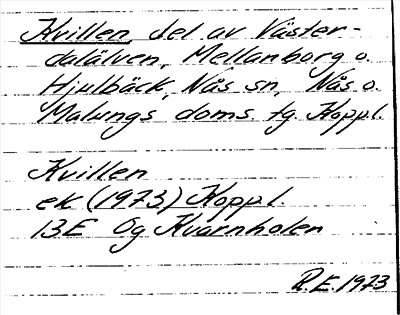 Kvillen, del av Väster-
dalälven, Mellanborg o.
Hjulbäck, Nås sn, Nås o.
Malungs doms. tg. Koppl.
Kvillen
ek (1973) Koppl.
13E Og Kvarnholen
R.E. 1973